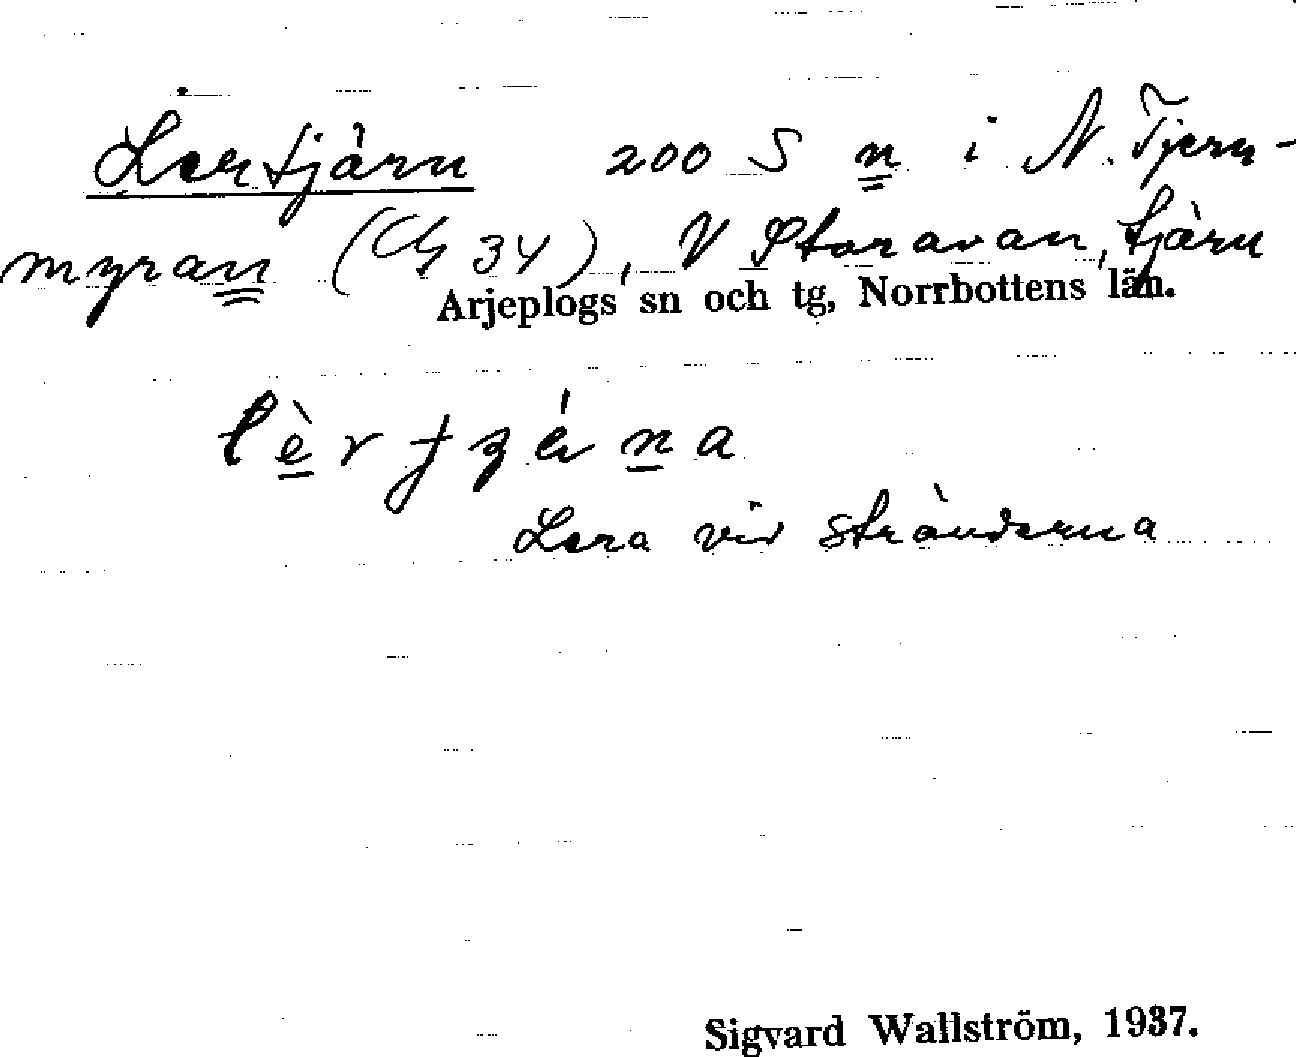 Lertjärn 200 S n i N. Tjern-
myran (Cg 34), V Storavan, tjärn
Arjeplogs sn och tg, Norrbottens län.
Lera vid stränderna
Sigvard Wallström, 1937.